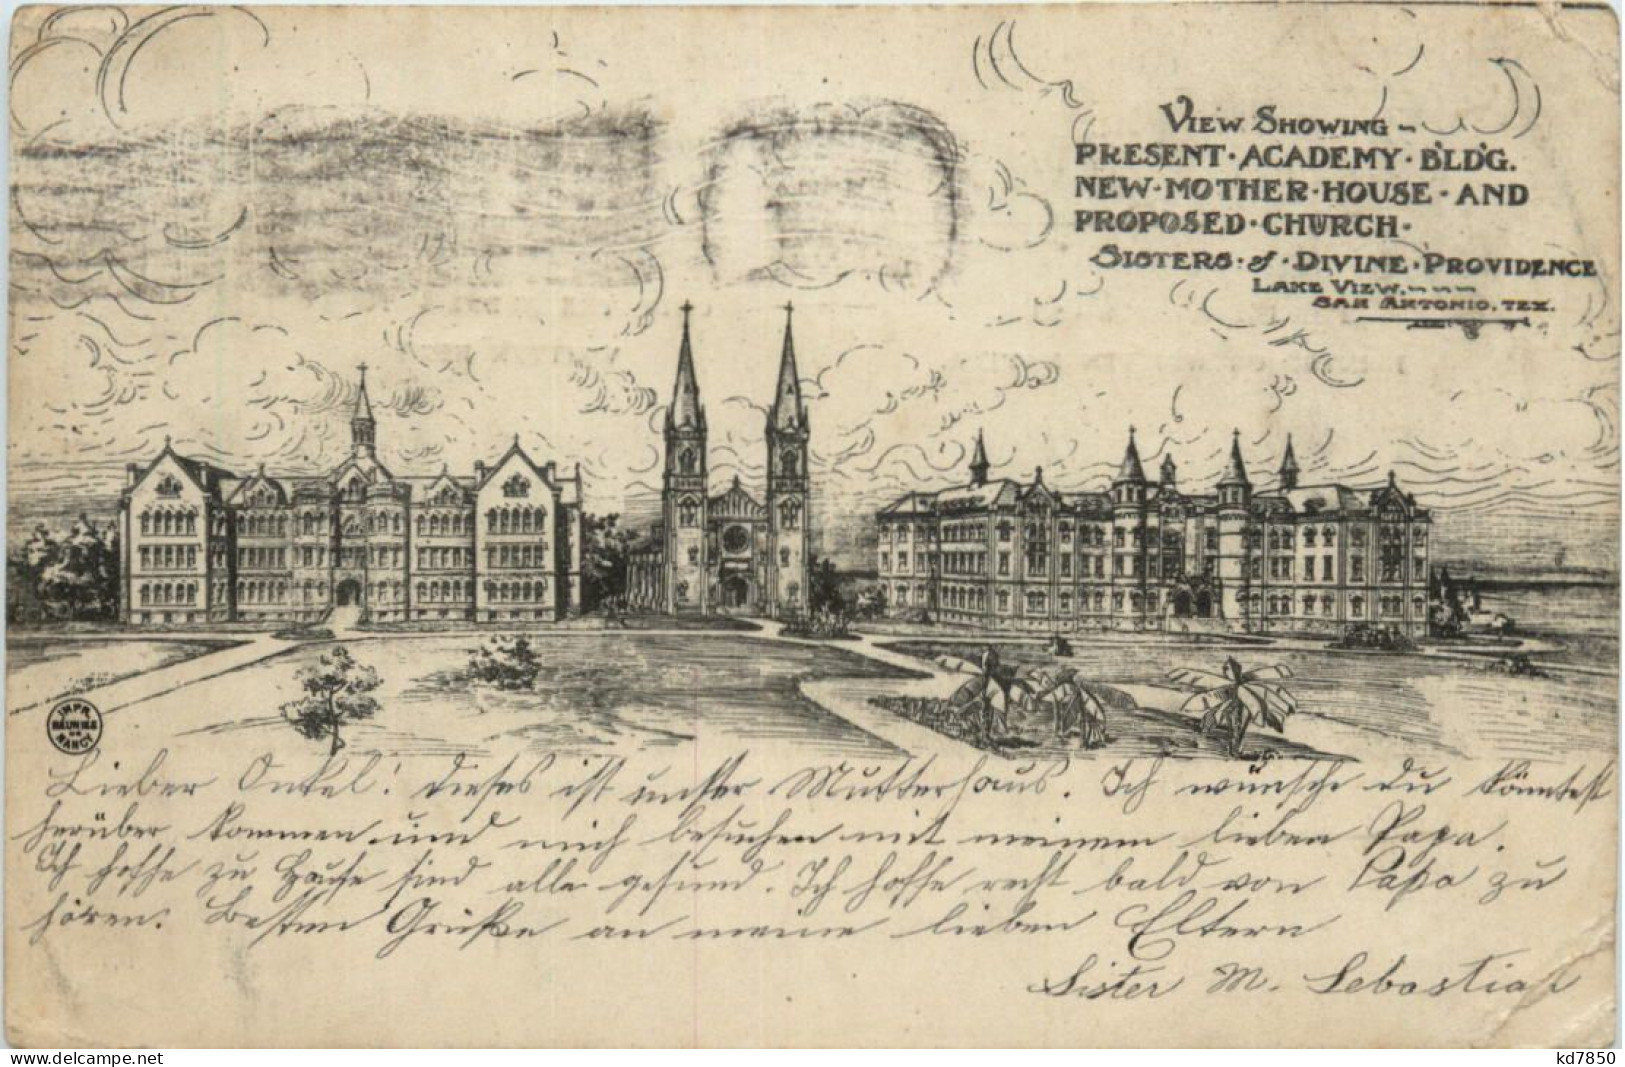 VIEW SHOWING
PRESENT · ACADEMY · B'LD'G.
NEW · MOTHER · HOUSE · AND
PROPOSED · CHURCH ·
SISTERS · of · DIVINE · PROVIDENCE
LAKE VIEW,
SAN ANTONIO, TEX.
IMPR.
REUNIES
DE
NANCY
Lieber Onkel! dieses ist unser Mutterhaus. Ich wünsche du könntest
herüber kommen und mich besuchen mit meinem lieben Papa.
Ich hoffe zu Hause sind alle gesund. Ich hoffe recht bald von Papa zu
hören. Besten Grüße an meine lieben Eltern
Sister M. Sebastian
www.delcampe.net
kd7850